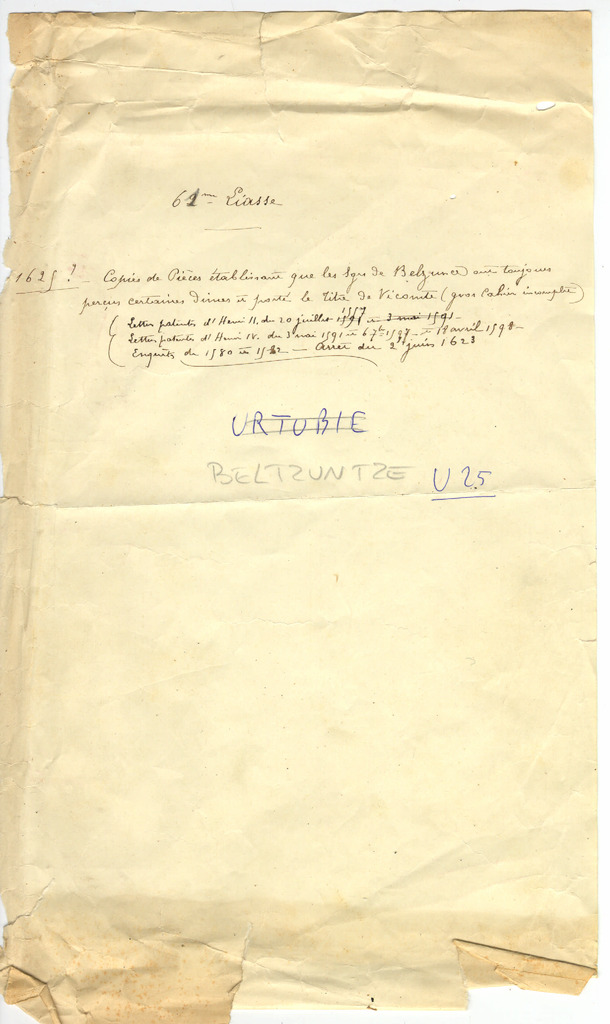 61me Liasse
1625 ? - Copies de Pièces établissant que les Sgrs de Belzunce ont toujours
perçus certaines dimes et porté le Titre de Vicomte (gros Cahier incomplet)
Lettres patentes d'Henri II, du 20 juillet 1557 et 3 mai 1591 -
Lettres patentes d'Henri IV. du 3 mai 1591 et 6 7bre 1597 - et 18 avril 1598 -
Enquête de 1580 et 1582 — Arrêt du 2 juin 1623
URTUBIE
BELTZUNTZE U 25